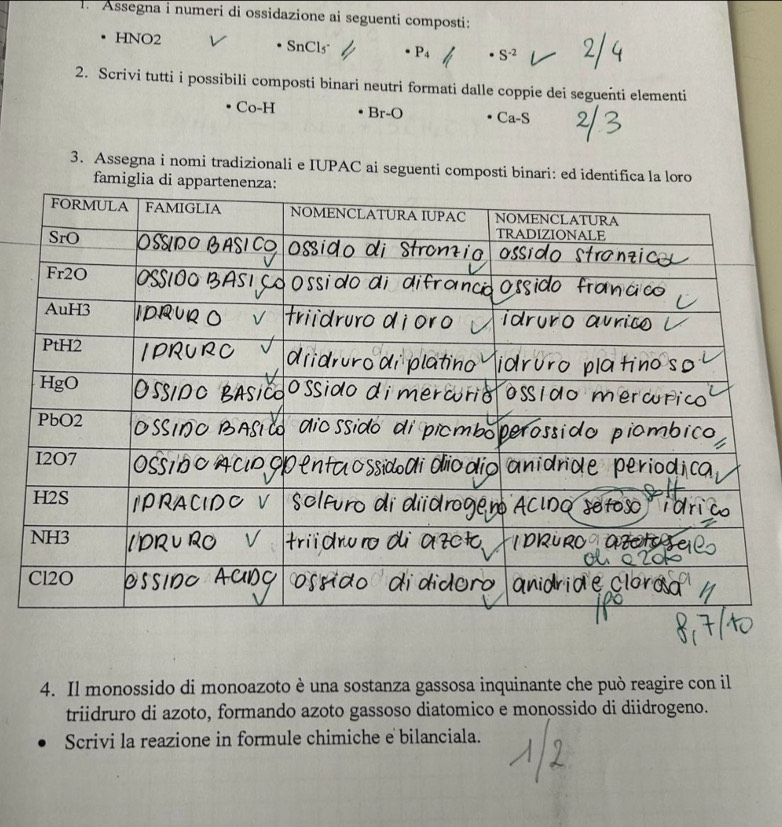 1. Assegna i numeri di ossidazione ai seguenti composti:
• HNO2 • SnCl5- • P4 • S-2 2/4
2. Scrivi tutti i possibili composti binari neutri formati dalle coppie dei seguenti elementi
• Co-H • Br-O • Ca-S 2/3
3. Assegna i nomi tradizionali e IUPAC ai seguenti composti binari: ed identifica la loro
famiglia di appartenenza:
FORMULA FAMIGLIA NOMENCLATURA IUPAC NOMENCLATURA
TRADIZIONALE
SrO OSSIDO BASICO ossido di stronzio ossido stronzico
Fr2O OSSIDO BASICO ossido di difrancio ossido francico
AuH3 IDRURO triidruro di oro idruro aurico
PtH2 IDRURO diidruro di platino idruro platinoso
HgO OSSIDO BASICO ossido di mercurio ossido mercurico
PbO2 OSSIDO BASICO diossido di piombo perossido piombico
I2O7 OSSIDO ACIDO pentaossido di diiodio anidride periodica
H2S IDRACIDO solfuro di diidrogeno ACIDO idrico
NH3 IDRURO triidruro di azoto IDRURO
di azoto
Cl2O OSSIDO ACIDO ossido di dicloro anidride clorosa
ipo
8,7/10
4. Il monossido di monoazoto è una sostanza gassosa inquinante che può reagire con il
triidruro di azoto, formando azoto gassoso diatomico e monossido di diidrogeno.
• Scrivi la reazione in formule chimiche e bilanciala.
1/2